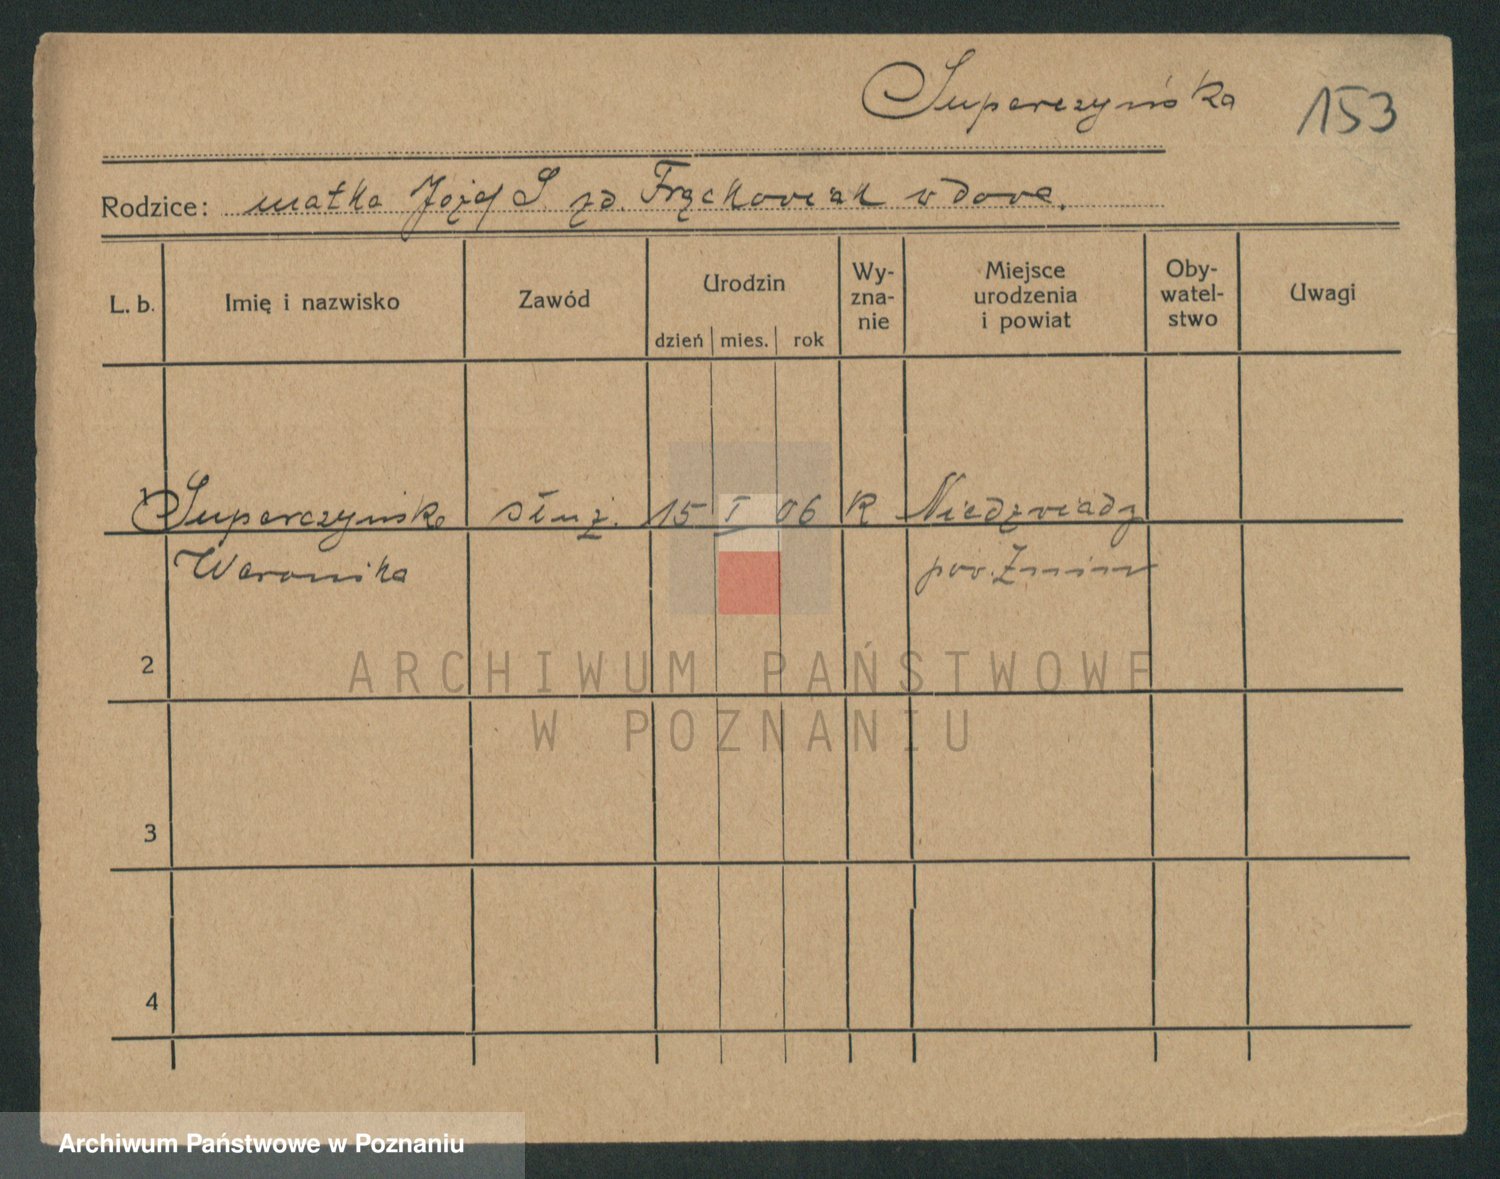 Superczyńska
153
Rodzice: matka Józef S. zd. Frąckowiak wdowa.
L. b. Imię i nazwisko Zawód Urodzin dzień mies. rok Wy-zna-nie Miejsce urodzenia i powiat Oby-watel-stwo Uwagi
1 Superczyńska służ. 15 I 06 R Niedźwiady
Weronika pow. Żnin
2
3
4
ARCHIWUM PAŃSTWOWE
W POZNANIU
Archiwum Państwowe w Poznaniu